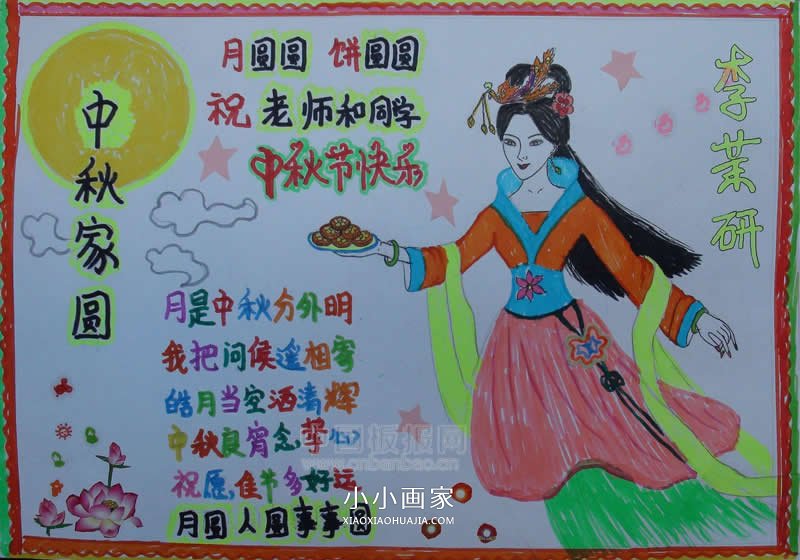 中秋家圆
月圆圆 饼圆圆
祝老师和同学
中秋节快乐
李茉研
月是中秋分外明
我把问候遥相寄
皓月当空洒清辉
中秋良宵念挚心
祝愿,佳节多好运
月圆人圆事事圆
板报网
www.cnbanbao.cn
小小画家
XIAOXIAOHUAJIA.COM